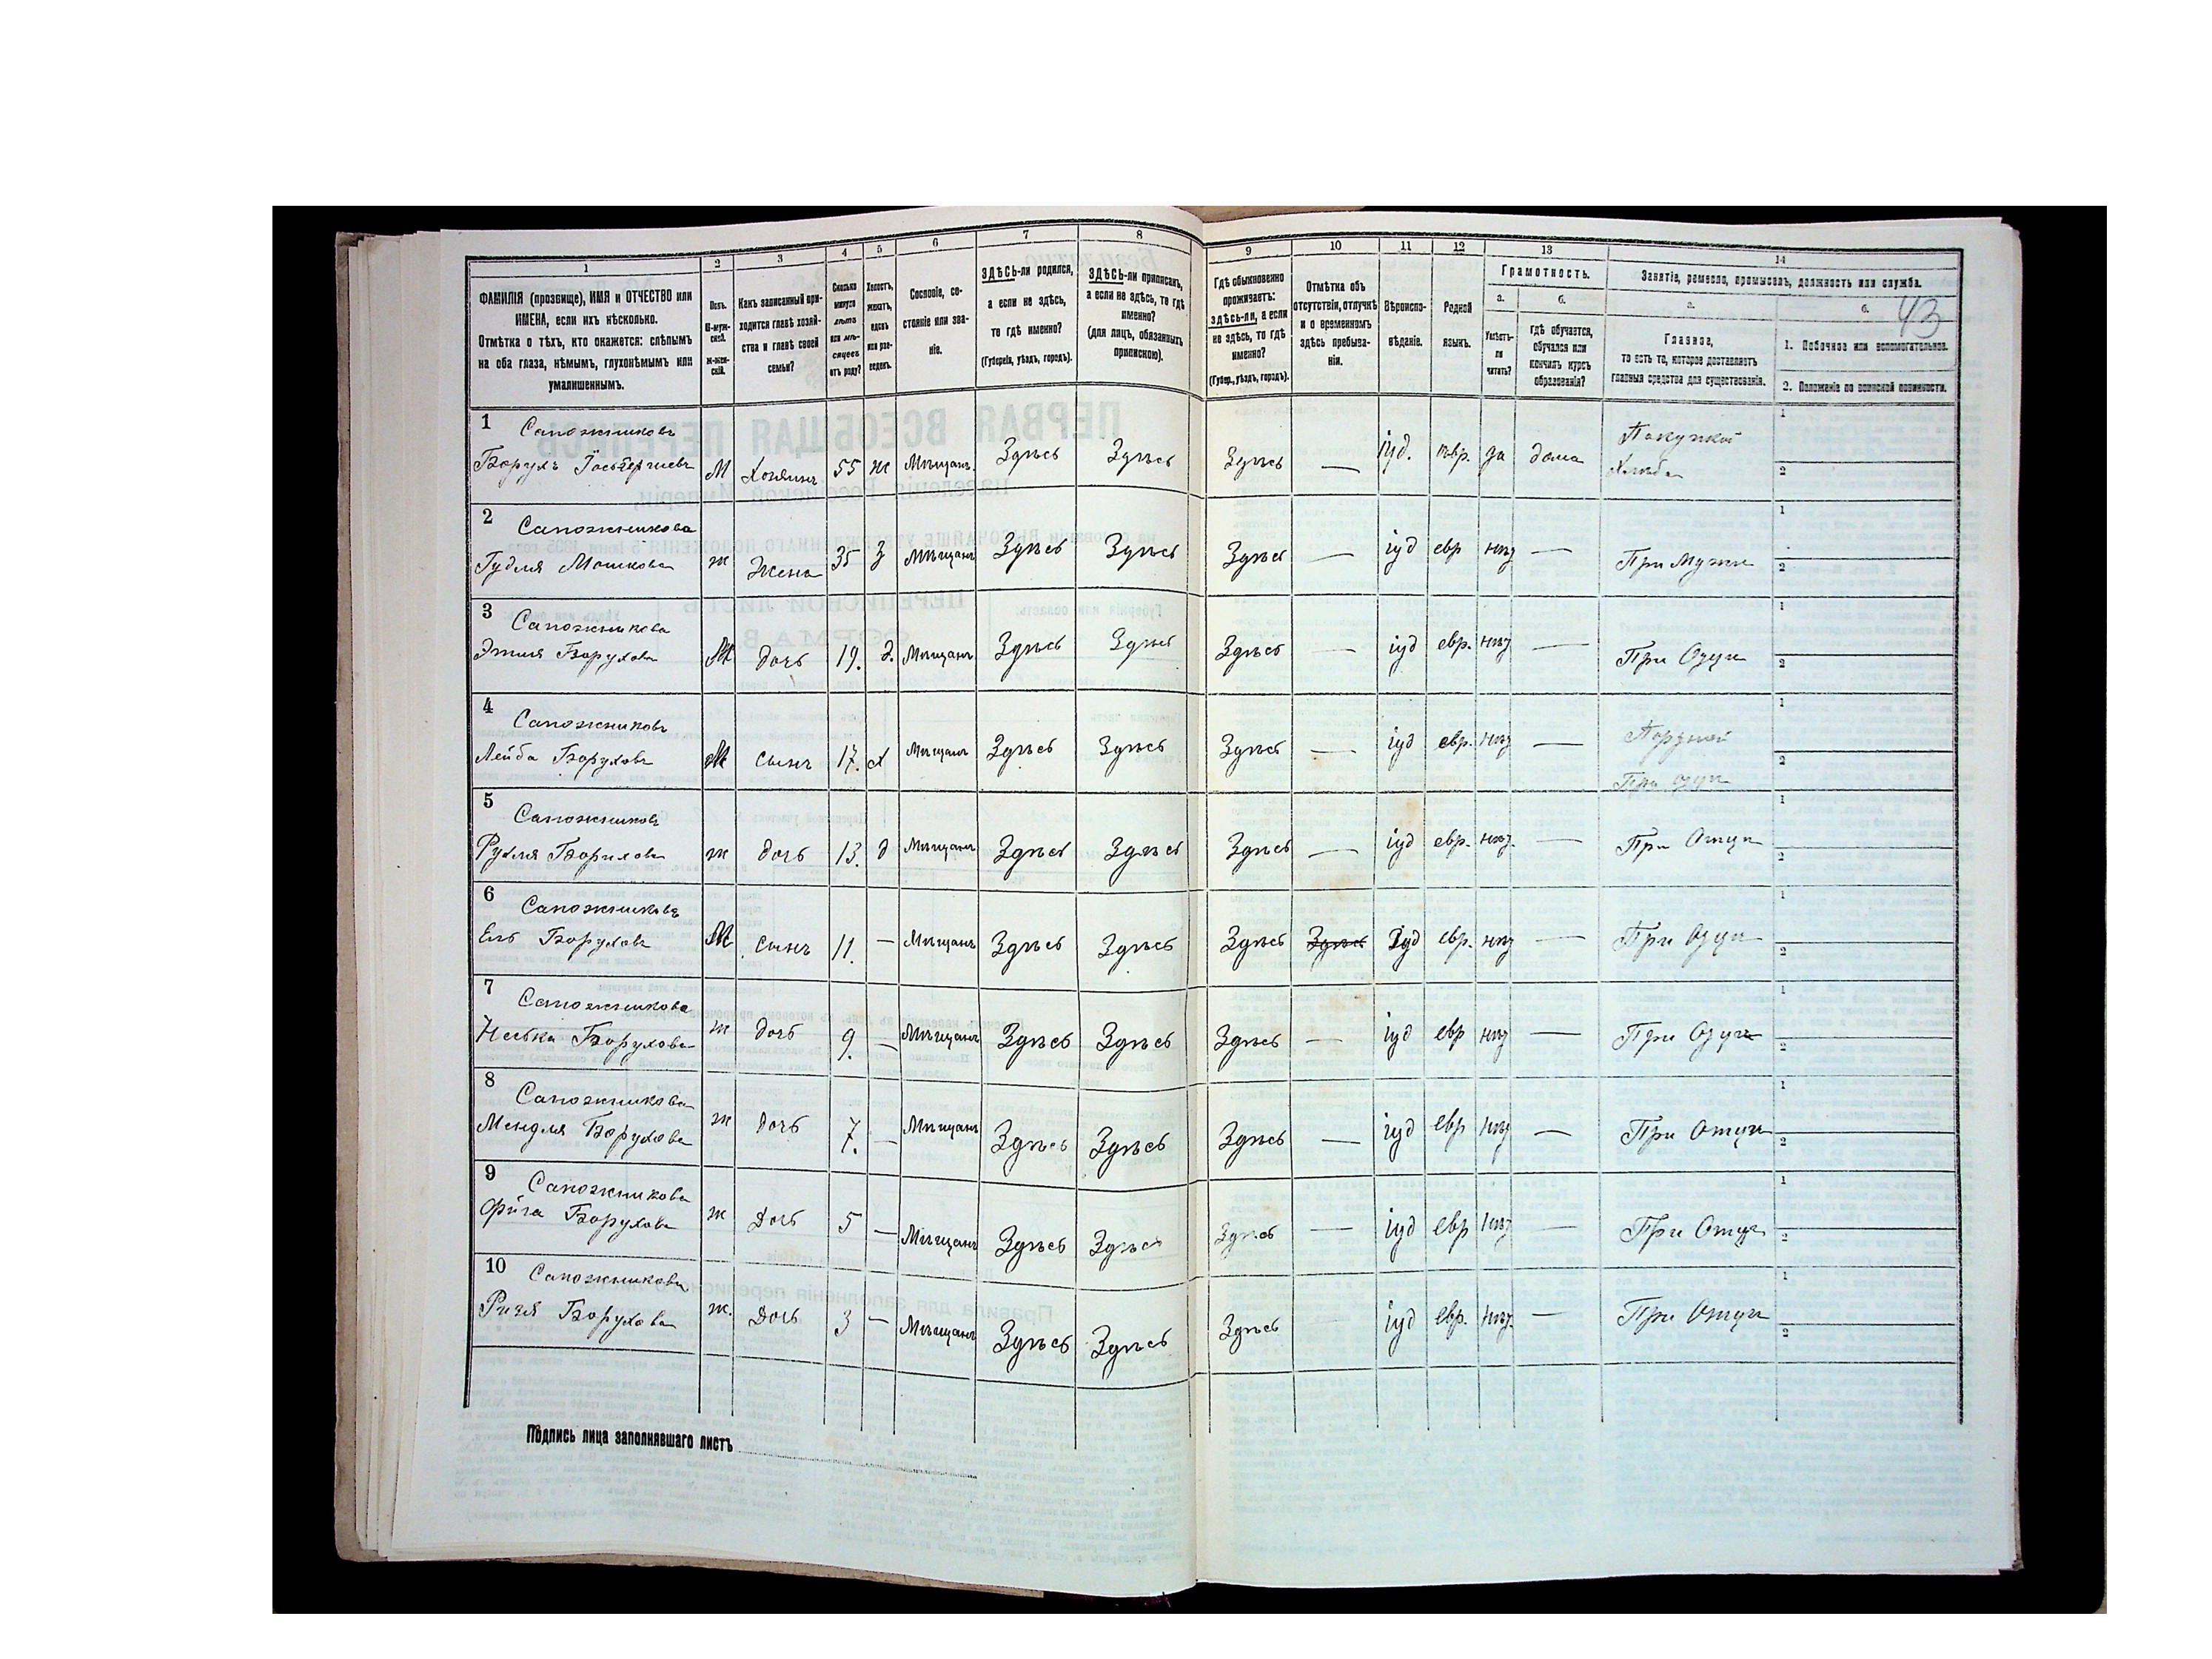 1 2 3 4 5 6 7 8 9 10 11 12 13 14
ФАМИЛІЯ (прозвище), ИМЯ и ОТЧЕСТВО или
ИМЕНА, если ихъ нѣсколько.
Отмѣтка о тѣхъ, кто окажется: слѣпымъ
на оба глаза, нѣмымъ, глухонѣмымъ или
умалишеннымъ.
Полъ.
М-муж-
ской.
ж-жен-
скій.
Какъ записанный при-
ходится главѣ хозяй-
ства и главѣ своей
семьи?
Сколько
минуло
лѣтъ
или мѣ-
сяцевъ
отъ роду?
Холостъ,
женатъ,
вдовъ
или раз-
веденъ.
Сословіе, со-
стояніе или зва-
ніе.
ЗДѢСЬ-ли родился,
а если не здѣсь,
то гдѣ именно?
(Губернія, уѣздъ, городъ).
ЗДѢСЬ-ли приписанъ,
а если не здѣсь, то гдѣ
именно?
(для лицъ, обязанныхъ
припискою).
Гдѣ обыкновенно
проживаетъ:
здѣсь-ли, а если
не здѣсь, то гдѣ
именно?
(Губер., уѣздъ, городъ).
Отмѣтка объ
отсутствіи, отлучкѣ
и о временномъ
здѣсь пребыва-
ніи.
Вѣроиспо-
вѣданіе.
Родной
языкъ.
Грамотность.
а.
Умѣетъ-
ли
читать?
б.
гдѣ обучается,
обучался или
кончилъ курсъ
образованія?
Занятіе, ремесло, промыселъ, должность или служба.
а.
Главное,
то есть то, которое доставляетъ
главныя средства для существованія.
б.
43
1. Побочное или вспомогательное.
2. Положеніе по воинской повинности.
1 Сапожниковъ
Борухъ М Хозяинъ 55 ж Мѣщанъ. Здѣсь Здѣсь Здѣсь — іуд. евр. да дома Покупкой Хлѣба 1 2
2 Сапожникова
Гудля Мошкова ж Жена 35 З Мѣщанъ Здѣсь Здѣсь Здѣсь — іуд евр нѣт — При Мужѣ 1 2
3 Сапожникова
Этля Борухова Ж Дочь 19. д. Мѣщанъ Здѣсь Здѣсь Здѣсь — іуд евр. нѣт — При Отцѣ 1 2
4 Сапожниковъ
Лейба Боруховъ М сынъ 17. х Мѣщанъ Здѣсь Здѣсь Здѣсь — іуд евр. нѣт — При отцѣ 1 2
5 Сапожников
Рухля Борухова ж дочь 13. д Мѣщанъ Здѣсь Здѣсь Здѣсь — іуд евр. нѣт. — При Отцѣ 1 2
6 Сапожниковъ
Ель Боруховъ М сынъ 11. — Мѣщанъ Здѣсь Здѣсь Здѣсь Здѣсь Іуд евр. нѣт — При Отцѣ 1 2
7 Сапожникова
Неська Борухова ж дочь 9. — Мѣщанъ Здѣсь Здѣсь Здѣсь — іуд евр нѣт — При Отцѣ 1 2
8 Сапожникова
Мендля Борухова ж дочь 7. — Мѣщанъ Здѣсь Здѣсь Здѣсь — іуд евр нѣт — При Отцѣ 1 2
9 Сапожникова
Фрига Борухова ж Дочь 5 — Мѣщанъ Здѣсь Здѣсь Здѣсь — іуд евр нѣт — При Отцѣ 1 2
10 Сапожникова
Ризя Борухова ж. Дочь 3 — Мѣщанъ Здѣсь Здѣсь Здѣсь іуд евр. нѣт. — При Отцѣ 1 2
Подпись лица заполнявшаго листъ